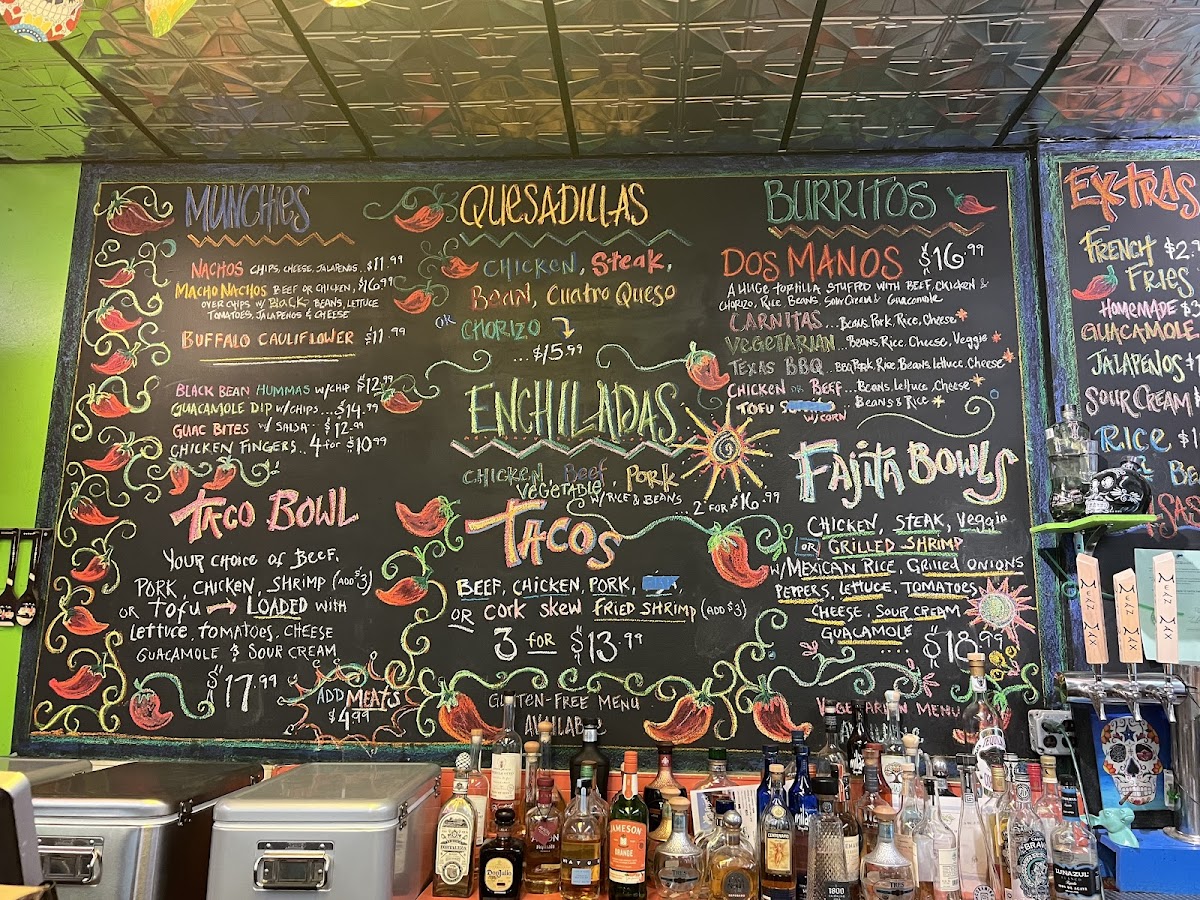 MUNCHiES
NACHOS CHIPS, CHEESE, JALAPENOS. $11.99
MACHO NACHOS BEEF OR CHICKEN, $16.99
OVER CHIPS W/ BLACK BEANS, LETTUCE
TOMATOES, JALAPENOS & CHEESE
BUFFALO CAULIFLOWER $11.99
BLACK BEAN HUMMAS W/CHIP $12.99
GUACAMOLE DIP W/CHIPS... $14.99
GUAC BITES W/ SALSA.. $12.99
CHICKEN FINGERS.. 4 for $10.99
TACO BOWL
YOUR CHOICE OF BEEF,
PORK, CHICKEN, SHRIMP (ADD $3)
OR TOFU LOADED WITH
LETTUCE, TOMATOES, CHEESE
GUACAMOLE & SOUR CREAM
$17.99
ADD MEATS
$4.99
QUESADILLAS
CHICKEN, Steak,
BEAN, Cuatro Queso
OR CHORIZO
...$15.99
ENCHILADAS
CHICKEN, Beef, Pork
VEGETABLE
W/RICE & BEANS ... 2 FOR $16.99
TACOS
BEEF, CHICKEN, PORK,
OR CORK SKEW FRIED SHRIMP (ADD $3)
3 FOR $13.99
GLUTEN-FREE MENU
BURRITOS
DOS MANOS $16.99
A HUGE TORTILLA STUFFED WITH BEEF, CHICKEN &
CHORIZO, RICE BEANS, SOUR CREAM & Guacamole
CARNITAS... Beans, Pork, Rice, Cheese
VEGETARIAN... Beans, Rice, Cheese, Veggie
TEXAS BBQ... BBQ Pork, Rice, Beans, Lettuce, Cheese
CHICKEN OR BEEF... Beans, Lettuce, Cheese
TOFU Beans & Rice
W/CORN
Fajita Bowls
CHICKEN, STEAK, Veggie
OR GRILLED SHRIMP
W/MEXICAN RICE, GRilled ONIONS
PEPPERS, LETTUCE, TOMATOES
CHEESE, SOUR CREAM
GUACAMOLE... $18.99
VEGETARIAN MENU
EXTRAS
FRENCH $2.
FRIES
HOMEMADE
GUACAMOLE
JALAPENOS $1
SOUR CREAM
RICE $1
MAZ MEX
MAZ MEX
MAZ MEX
JAMESON
ORANGE
DonJulio
1800
TRES
LUNAZUL